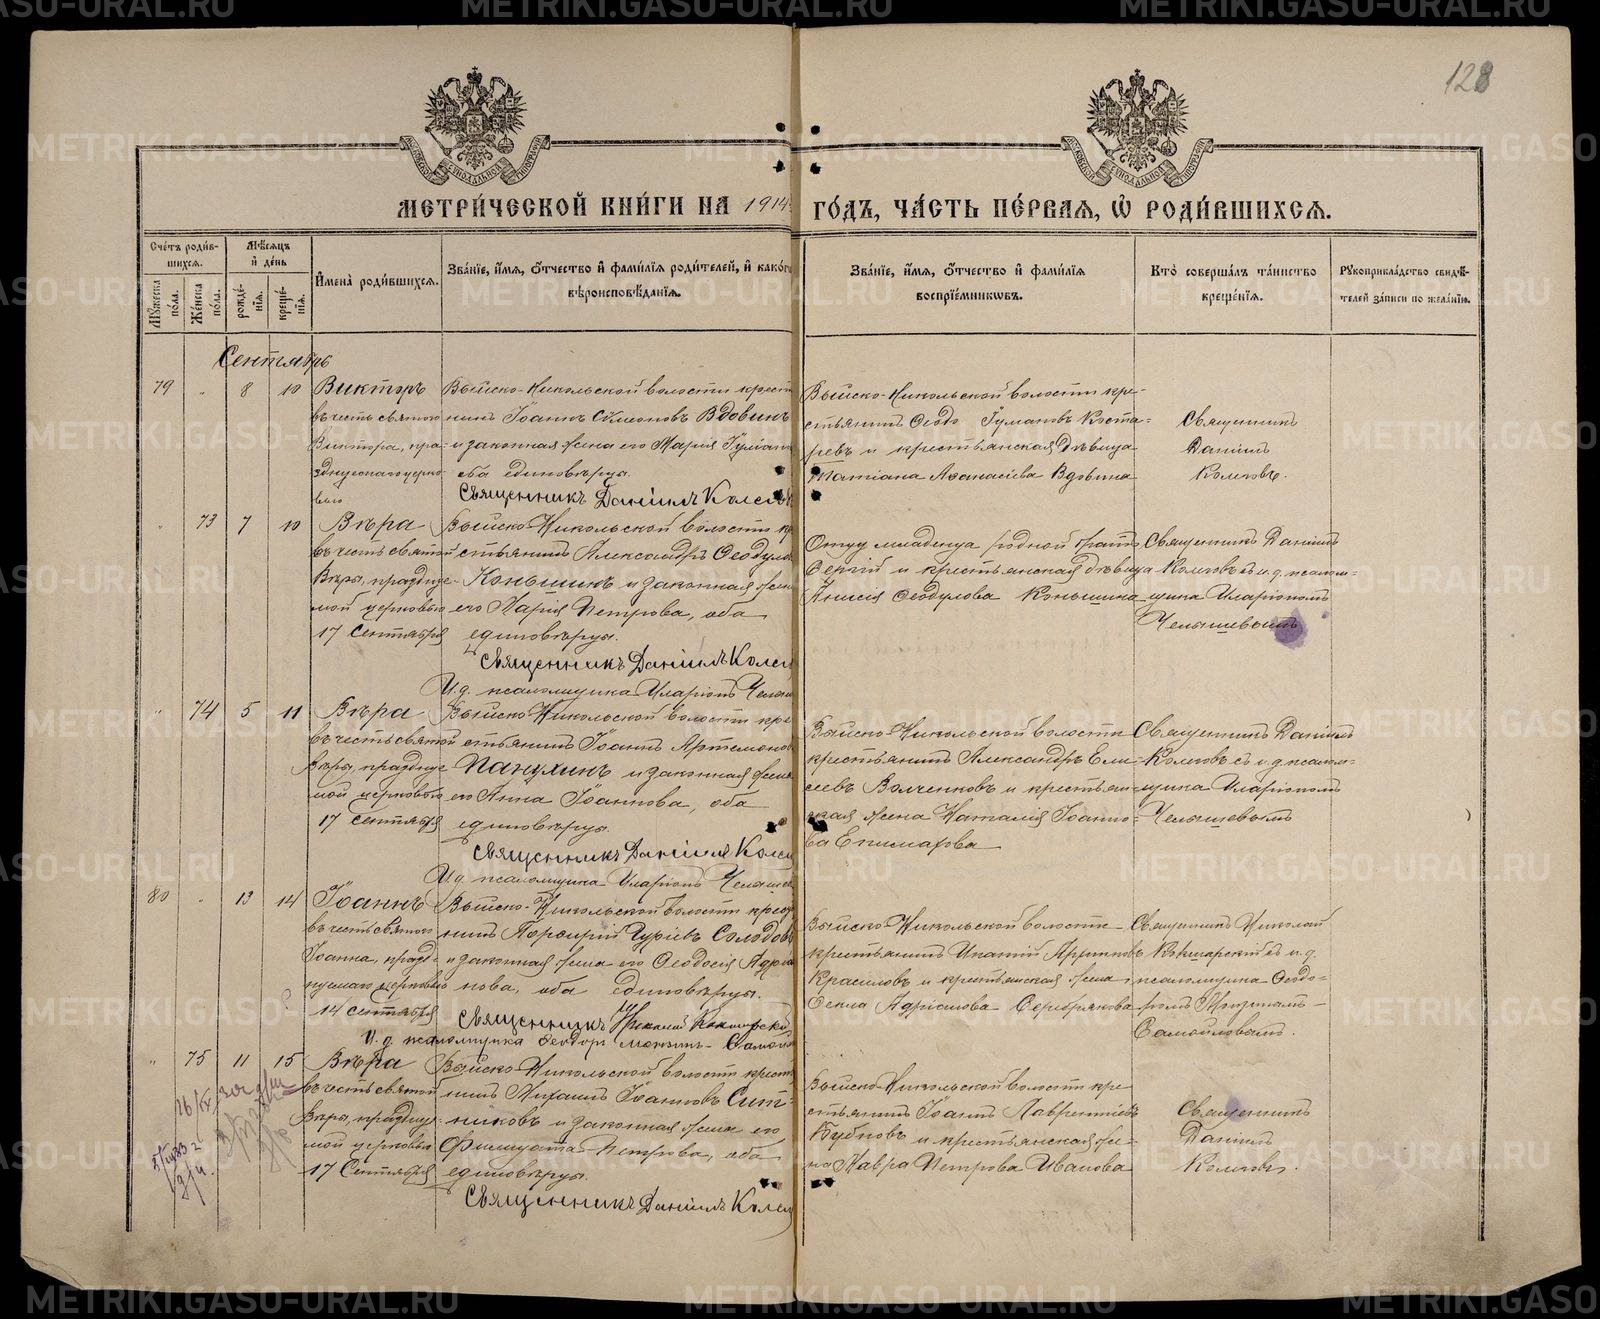 128
МЕТРИ́ЧЕСКОЙ КНИ́ГИ НА 1914 ГО́ДЪ, ЧА́СТЬ ПЕ́РВАЯ, Ѡ РОДИ́ВШИХСЯ.
Сче́тъ роди́вшихся.
Мꙋ́жеска по́ла.
Же́нска по́ла.
Мѣ́сяцъ и де́нь
рожде́нїя.
креще́нїя.
И҆мена̀ роди́вшихся.
Зва́нїе, и҆́мя, ѻ҆́тчество и҆ фами́лїя роди́телей, и҆ како́гѡ
вѣроисповѣ́данїя.
Зва́нїе, и҆́мя, ѻ҆́тчество и҆ фами́лїя
воспрїе́мникѡвъ.
Кто̀ соверша́лъ та́инство
креще́нїя.
Рꙋкоприкла́дство свидѣ́-
телей за́писи по жела́нїю.
Сентябрь
79 " 8 10 Викторъ
въ честь святого
Виктора, пра-
зднуемаго церко-
вью
Выйско-Никольской волости крест
нинъ Іоаннъ Симеоновъ Вдовинъ
и законная жена его Марія
оба единовѣрцы.
Священникъ Даніилъ
Выйско-Никольской волости кре-
стьянинъ Коста-
ревъ и крестьянская дѣвица
Татіана Аѳанасіева Вдовина
Священникъ
Даніилъ
" 73 7 10 Вѣра
въ честь святой
Вѣры, празднуе-
мой церковью
17 Сентября
Выйско-Никольской волости кр
стьянинъ Александръ Ѳеодуло
Коньшинъ и законная жен
его Марія Петрова, оба
единовѣрцы.
Священникъ Даніилъ
И.д. псаломщика Иларіонъ
Отцу младенца родной братъ
Сергій и крестьянская дѣвица
Анисія Ѳеодулова Коньшина
Священникъ Даніилъ
съ и.д. псалом-
щика Иларіономъ
Челышевымъ
" 74 5 11 Вѣра
въ честь святой
Вѣры, празднуе
мой церковью
17 Сентября
Выйско-Никольской волости кре
стьянинъ Іоаннъ Артемонов
Панухинъ и законная жена
его Анна Іоаннова, оба
единовѣрцы.
Священникъ Даніилъ
И.д. псаломщика Иларіонъ
Выйско-Никольской волости
крестьянинъ Александръ Ели-
сеевъ Волченковъ и крестьян-
ская жена Наталія Іоанно-
ва Епимахова
Священникъ Даніилъ
съ и.д. псалом-
щика Иларіономъ
Челышевымъ
80 " 13 14 Іоаннъ
въ честь святого
Іоанна, празд-
нуемаго церковью
14 сентября
Выйско-Никольской волости крестья
нинъ Порфирій Гуріевъ Солодов
и законная жена его Ѳеодосія Адріа
нова, оба единовѣрцы.
Священникъ Николай
И.д. псаломщика Ѳеодоръ
Выйско-Никольской волости
крестьянинъ Игнатій
Красиловъ и крестьянская жена
Ѳекла Адріанова Серебрякова
Священникъ Николай
съ и.д.
псаломщика Ѳеодо-
ромъ
Самойловымъ.
" 75 11 15 Вѣра
въ честь святой
Вѣры, празднуе
мой церковью
17 Сентября
Выйско-Никольской волости крест
нинъ Михаилъ Іоанновъ Сит-
никовъ и законная жена его
Фелицата Петрова, оба
единовѣрцы.
Священникъ Даніилъ
Выйско-Никольской волости кре-
стьянинъ Іоаннъ Лаврентіевъ
Бубновъ и крестьянская же-
на Мавра Петрова Иванова
Священникъ
Даніилъ